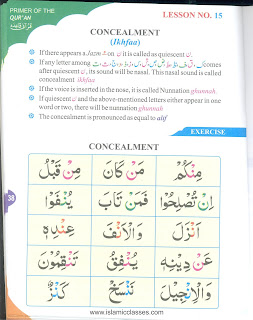 PRIMER OF THE
QUR'AN
LESSON NO. 15
CONCEALMENT
(Ikhfaa)
If there appears a Jazm on ن it is called as quiescent ن.
If any letter among
comes
after quiescent ن, its sound will be nasal. This nasal sound is called
concealment ikhfaa
If the voice is inserted in the nose, it is called Nunnation ghunnah.
If quiescent ن and the above-mentioned letters either appear in one
word or two, there will be nunnation ghunnah
The concealment is pronounced as equal to alif
EXERCISE
CONCEALMENT
مِنْكُمْ مَنْ كَانَ مِنْ قَبْلُ
اِنْ تُصْلِحُوْا فَمَنْ تَابَ يُنْفَوْا
اَنْزَلَ وَالْاَنْفَ عِنْدِهٖ
عَنْ دِيْنِهٖ يُنْفِقُ تَنْقِمُوْنَ
وَالْاِنْجِيْلَ نَنْسَخْ كَنْزٌ
38
www.islamicclasses.com